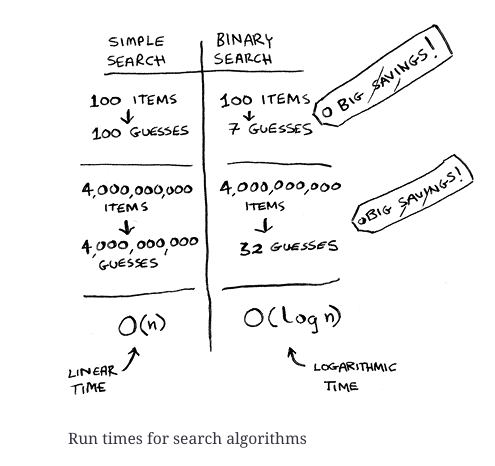 SIMPLE
SEARCH
BINARY
SEARCH
100 ITEMS
100 GUESSES
100 ITEMS
7 GUESSES
BIG SAVINGS!
4,000,000,000
ITEMS
4,000,000,000
GUESSES
4,000,000,000
ITEMS
32 GUESSES
BIG SAVINGS!
O(n)
O(log n)
LINEAR
TIME
LOGARITHMIC
TIME
Run times for search algorithms